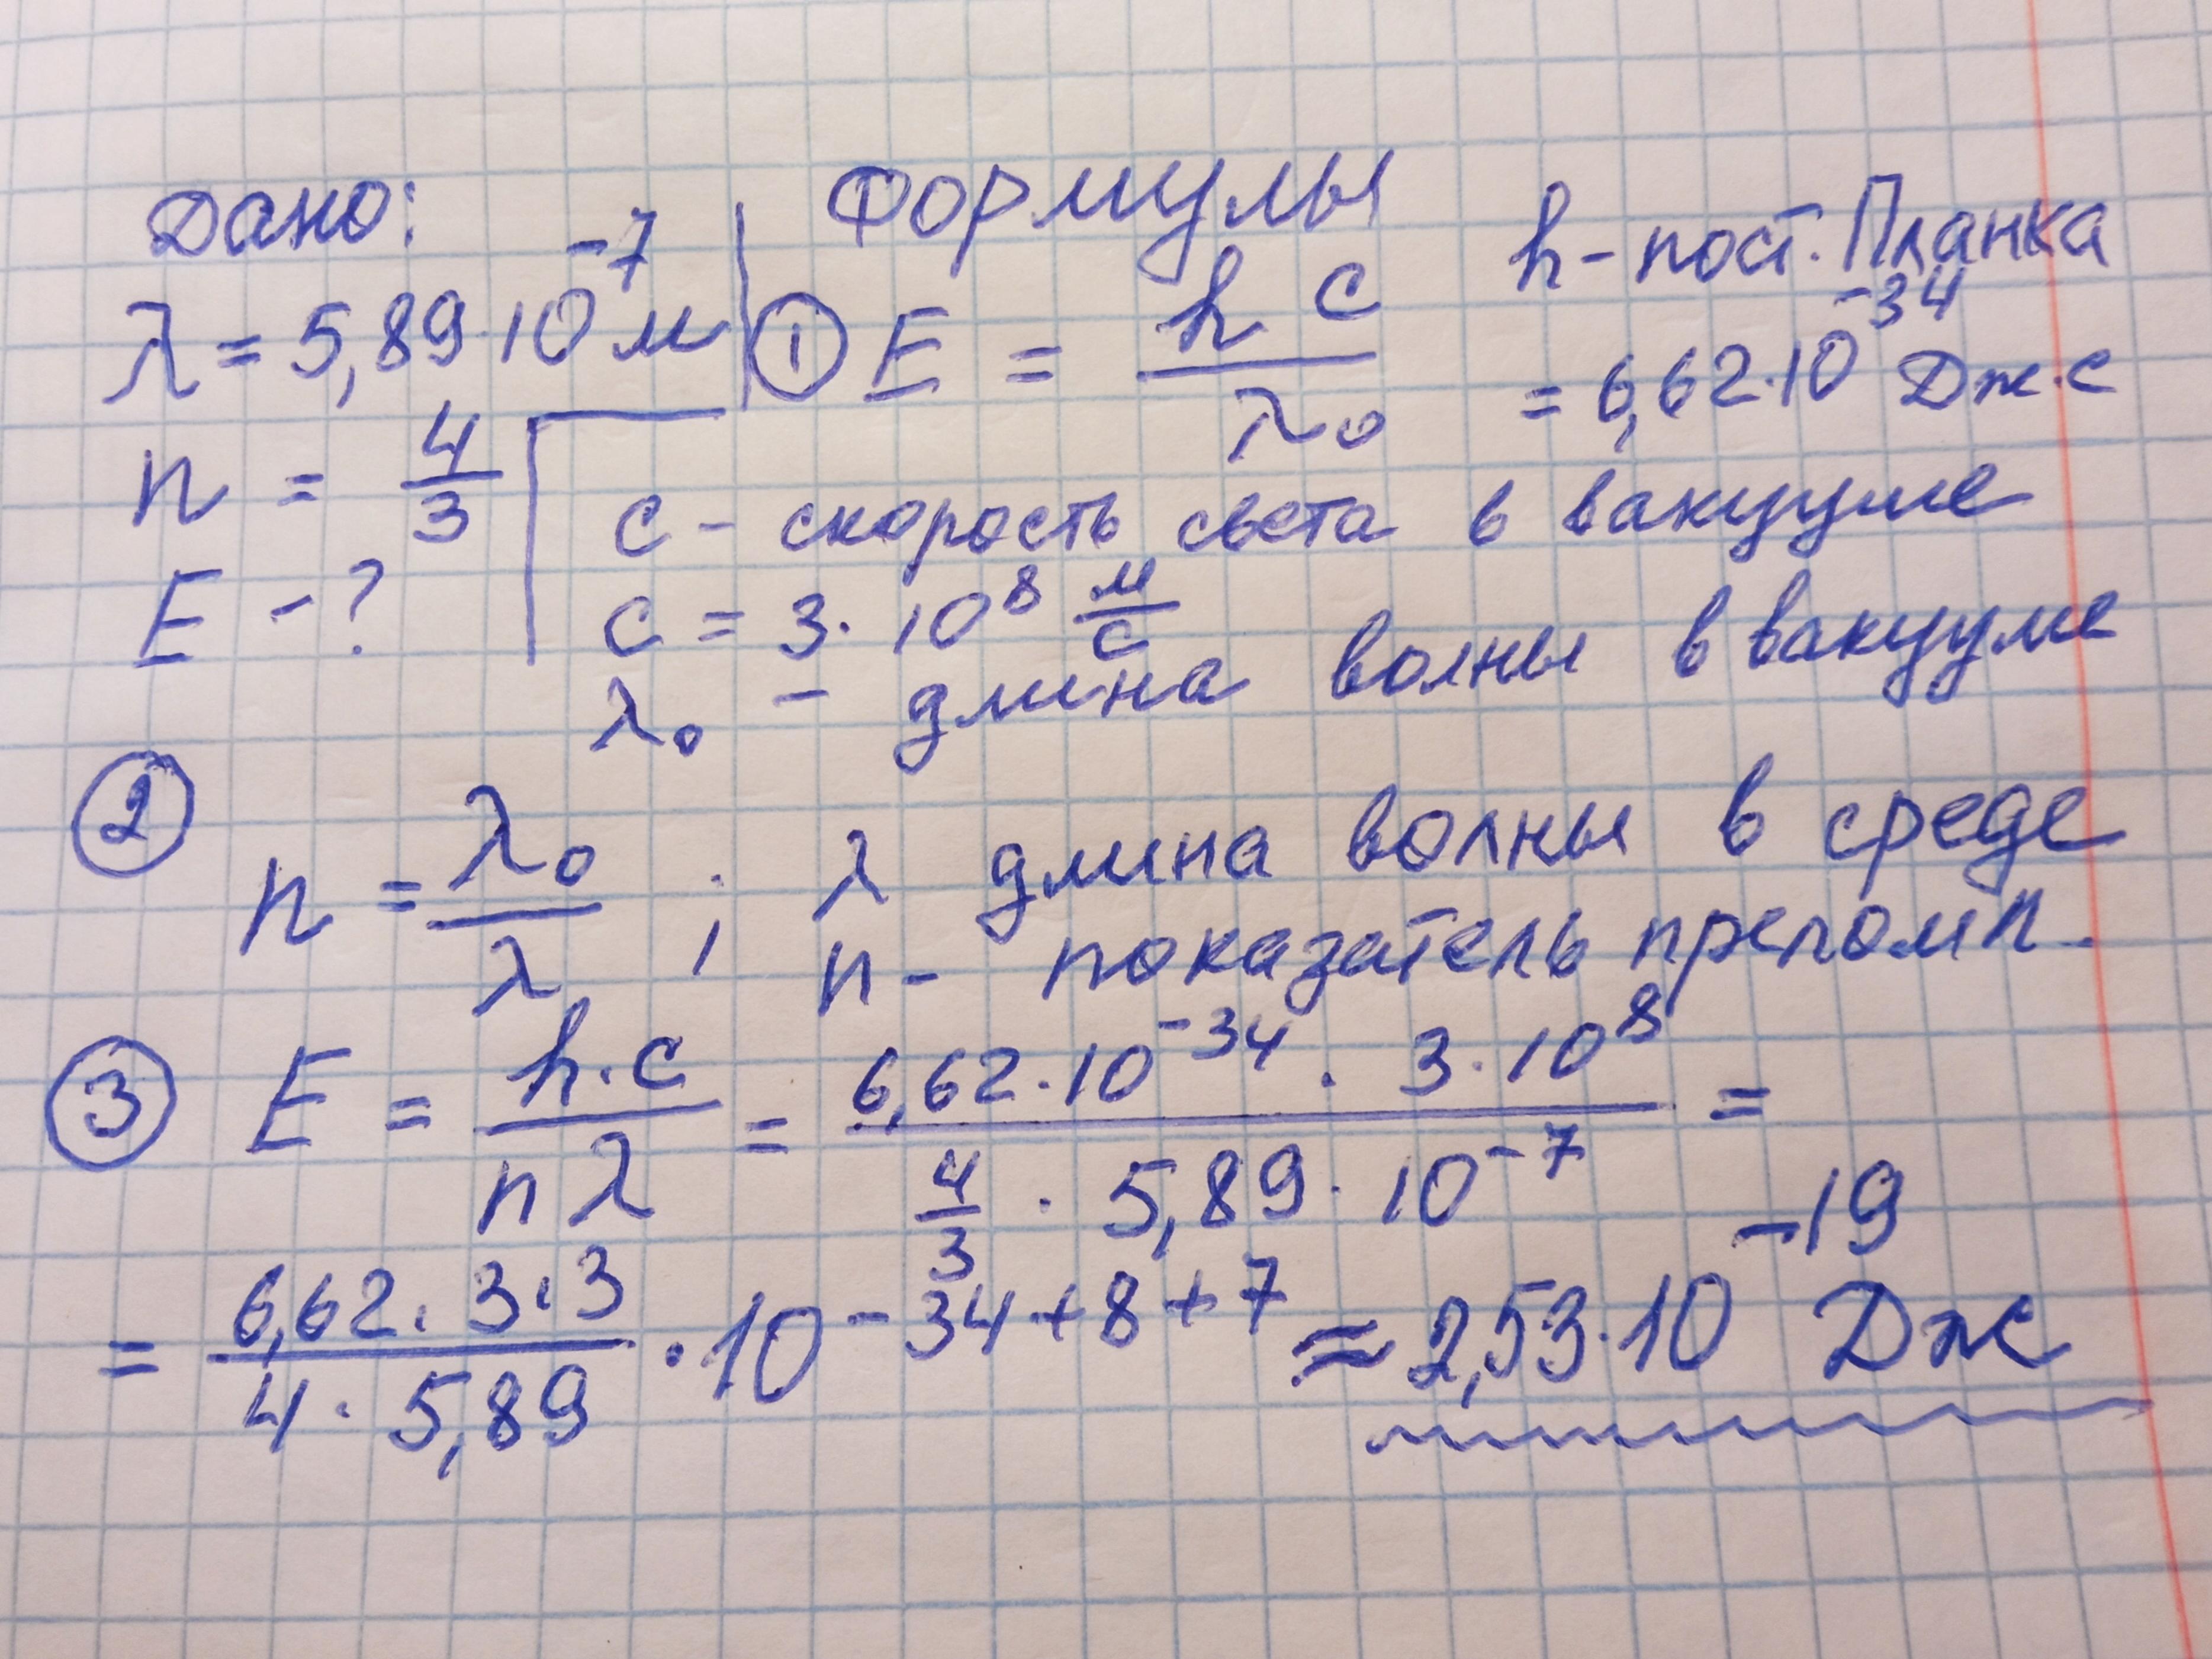 Дано: Формулы h - пост. Планка
λ = 5,89·10⁻⁷ м ① E = h c / λ₀ = 6,62·10⁻³⁴ Дж·с
n = 4/3 c - скорость света в вакууме
E - ? c = 3·10⁸ м/с
λ₀ - длина волны в вакууме
② n = λ₀/λ ; λ длина волны в среде
n - показатель преломл.
③ E = h·c / n λ = 6,62·10⁻³⁴ · 3·10⁸ / 4/3 · 5,89·10⁻⁷ =
= 6,62·3·3 / 4·5,89 · 10⁻³⁴⁺⁸⁺⁷ ≈ 2,53·10⁻¹⁹ Дж